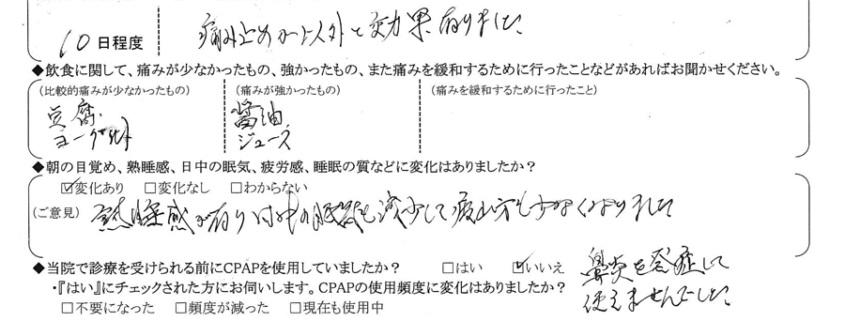 10日程度
痛み止めが以外と効果有りました
◆飲食に関して、痛みが少なかったもの、強かったもの、また痛みを緩和するために行ったことなどがあればお聞かせください。
(比較的痛みが少なかったもの) (痛みが強かったもの) (痛みを緩和するために行ったこと)
豆腐 醤油
ヨーグルト ジュース
◆朝の目覚め、熟睡感、日中の眠気、疲労感、睡眠の質などに変化はありましたか?
☑変化あり □変化なし □わからない
(ご意見) 熟睡感が有り日中の眠気も減少して疲れ方も少なくなりました
◆当院で診療を受けられる前にCPAPを使用していましたか? □はい ☑いいえ 鼻炎を発症して
・『はい』にチェックされた方にお伺いします。CPAPの使用頻度に変化はありましたか? 使えませんでした
□不要になった □頻度が減った □現在も使用中